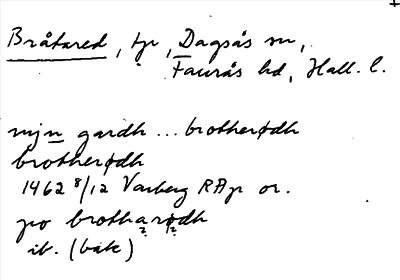 Bråtared, tp, Dagsås sn,
Faurås hd, Hall. l.
mjn gardh ... brotherødh
brotherødh
1462 8/12 Varberg RAp or.
po brotharødh
ib. (bak)